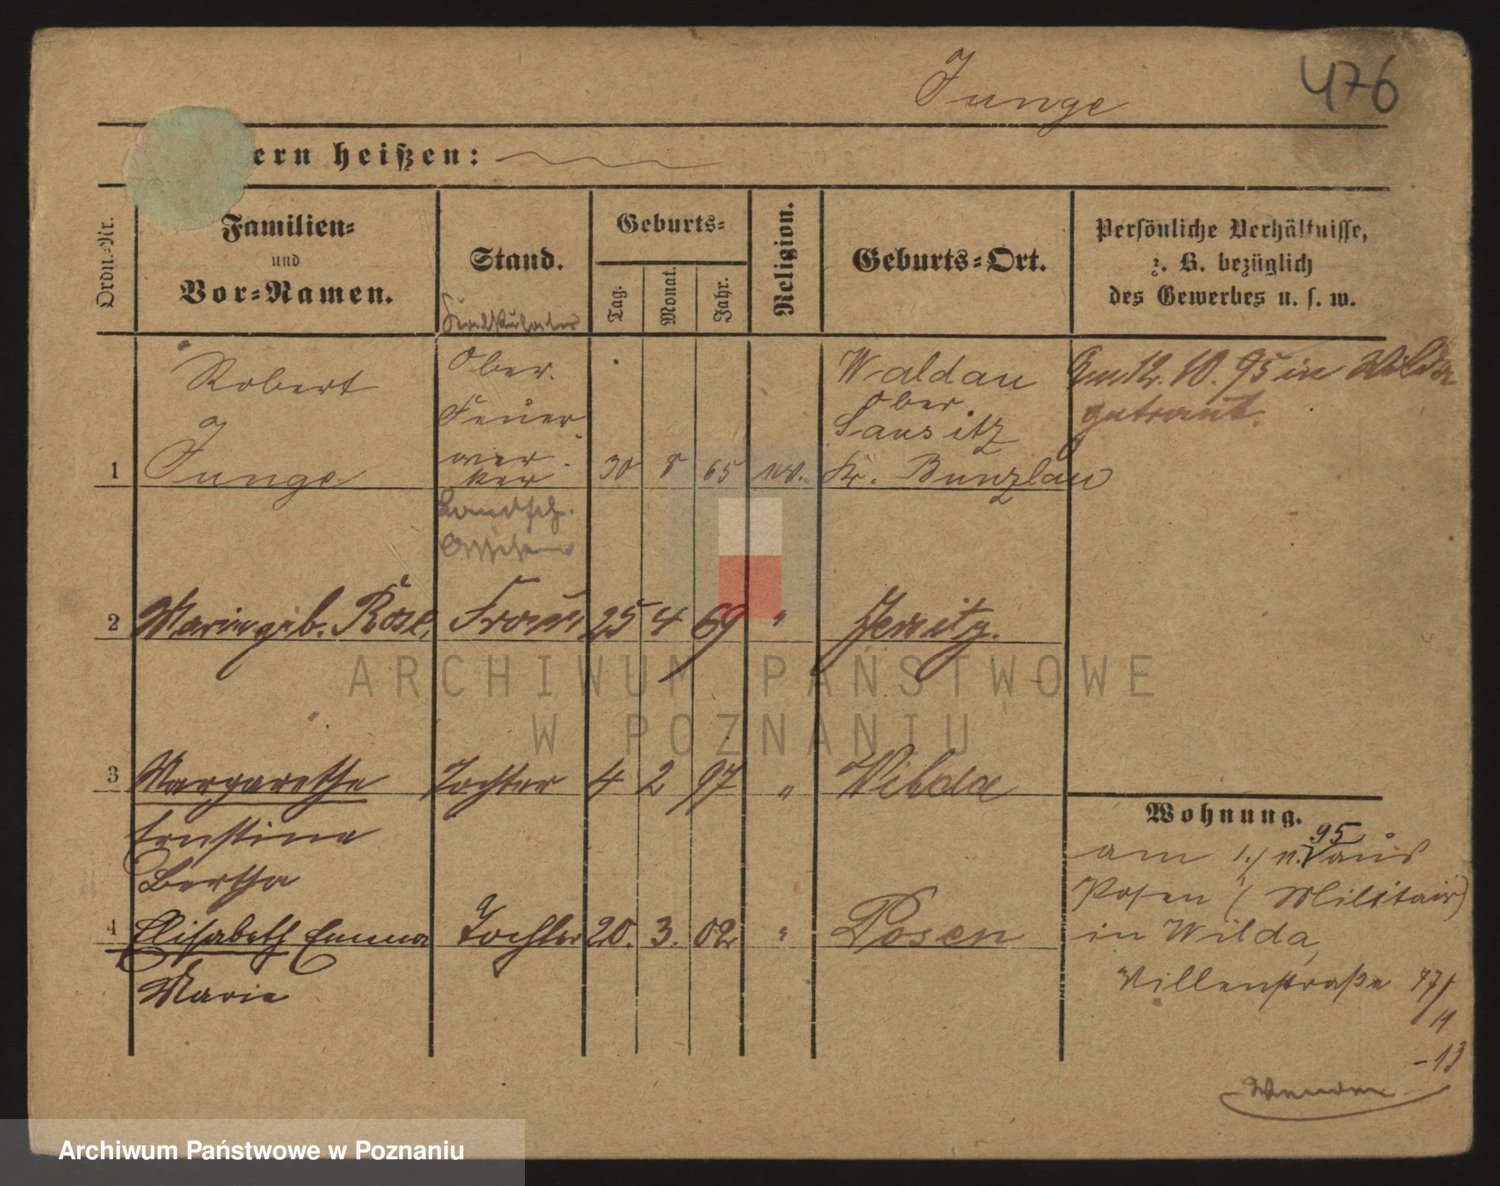 Junge
476
ern heißen:
Ordn.-Nr.
Familien-
und
Vor-Namen.
Stand.
Geburts-
Tag.
Monat.
Jahr.
Religion.
Geburts-Ort.
Persönliche Verhältnisse,
z. B. bezüglich
des Gewerbes u. s. w.
1
Robert
Junge
Ober-
Feuer-
wer-
ker
30 8 65 ev.
Waldau
Ober
Lausitz
Kr. Bunzlau
Am 12. 10. 95 in Wilda
getraut.
Landsch.
2 Marie geb. Röse, Frau 25 4 69 " Jersitz.
3 Margarethe Tochter 4 2 97 " Wilda
Ernstine
Bertha
4 Elisabeth Emma Tochter 20. 3. 02 " Posen
Marie
Wohnung.
am 1./11. 95 aus
Posen (Militair)
in Wilda,
Villenstraße
11
-13
Wenden
ARCHIWUM PAŃSTWOWE
W POZNANIU
Archiwum Państwowe w Poznaniu